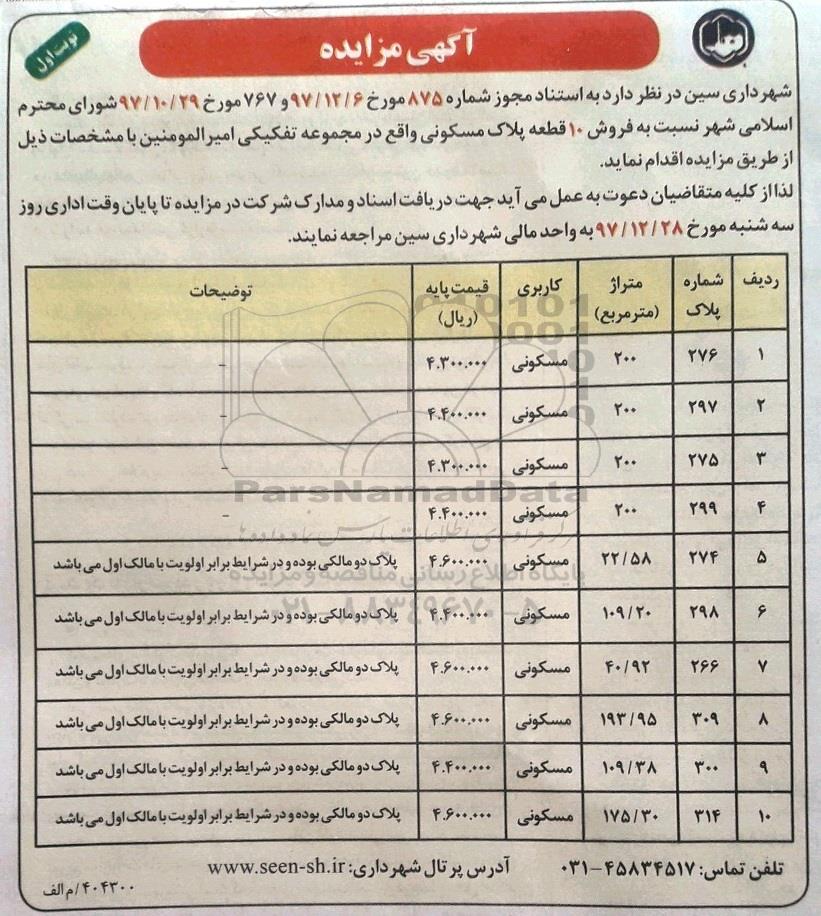 آگهی مزایده
نوبت اول
شهرداری سین در نظر دارد به استناد مجوز شماره ۸۷۵ مورخ ۹۷/۱۲/۶ و ۷۶۷ مورخ ۹۷/۱۰/۲۹ شورای محترم
اسلامی شهر نسبت به فروش ۱۰ قطعه پلاک مسکونی واقع در مجموعه تفکیکی امیرالمومنین با مشخصات ذیل
از طریق مزایده اقدام نماید.
لذا از کلیه متقاضیان دعوت به عمل می آید جهت دریافت اسناد و مدارک شرکت در مزایده تا پایان وقت اداری روز
سه شنبه مورخ ۹۷/۱۲/۲۸ به واحد مالی شهرداری سین مراجعه نمایند.
ردیف شماره پلاک متراژ (مترمربع) کاربری قیمت پایه (ریال) توضیحات
۱ ۲۷۶ ۲۰۰ مسکونی ۴.۳۰۰.۰۰۰ -
۲ ۲۹۷ ۲۰۰ مسکونی ۴.۴۰۰.۰۰۰ -
۳ ۲۷۵ ۲۰۰ مسکونی ۴.۳۰۰.۰۰۰ -
۴ ۲۹۹ ۲۰۰ مسکونی ۴.۴۰۰.۰۰۰ -
۵ ۲۷۴ ۲۲/۵۸ مسکونی ۴.۶۰۰.۰۰۰ پلاک دو مالکی بوده و در شرایط برابر اولویت با مالک اول می باشد
۶ ۲۹۸ ۱۰۹/۲۰ مسکونی ۴.۴۰۰.۰۰۰ پلاک دو مالکی بوده و در شرایط برابر اولویت با مالک اول می باشد
۷ ۲۶۶ ۴۰/۹۲ مسکونی ۴.۶۰۰.۰۰۰ پلاک دو مالکی بوده و در شرایط برابر اولویت با مالک اول می باشد
۸ ۳۰۹ ۱۹۳/۹۵ مسکونی ۴.۶۰۰.۰۰۰ پلاک دو مالکی بوده و در شرایط برابر اولویت با مالک اول می باشد
۹ ۳۰۰ ۱۰۹/۳۸ مسکونی ۴.۴۰۰.۰۰۰ پلاک دو مالکی بوده و در شرایط برابر اولویت با مالک اول می باشد
۱۰ ۳۱۴ ۱۷۵/۳۰ مسکونی ۴.۶۰۰.۰۰۰ پلاک دو مالکی بوده و در شرایط برابر اولویت با مالک اول می باشد
ParsNamadData
پایگاه اطلاع رسانی مناقصه و مزایده
۰۲۱-۸۸۳۴۹۶۷۰-۵
تلفن تماس: ۴۵۸۳۴۵۱۷-۰۳۱ آدرس پرتال شهرداری: www.seen-sh.ir
۴۰۴۳۰۰/م الف